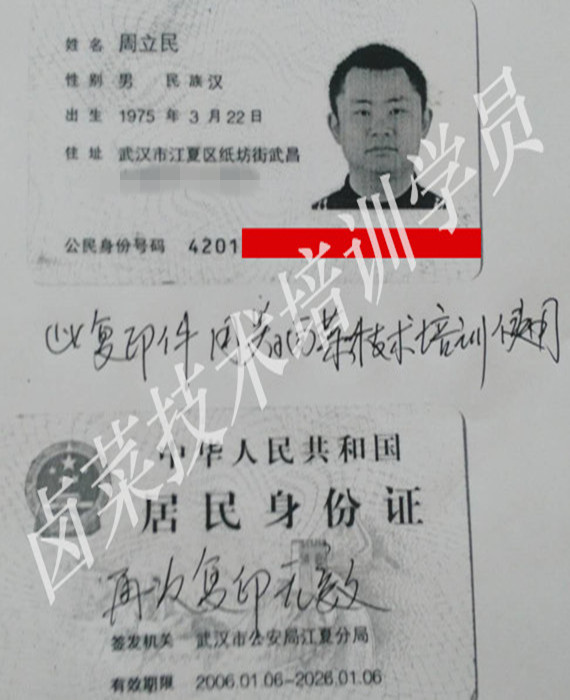 姓名 周立民
性别 男 民族汉
出生 1975 年 3 月 22 日
住址 武汉市江夏区纸坊街武昌
公民身份号码 4201
此复印件同意卤菜技术培训使用
卤菜技术培训学员
中华人民共和国
居民身份证
再次复印无效
签发机关 武汉市公安局江夏分局
有效期限 2006.01.06-2026.01.06